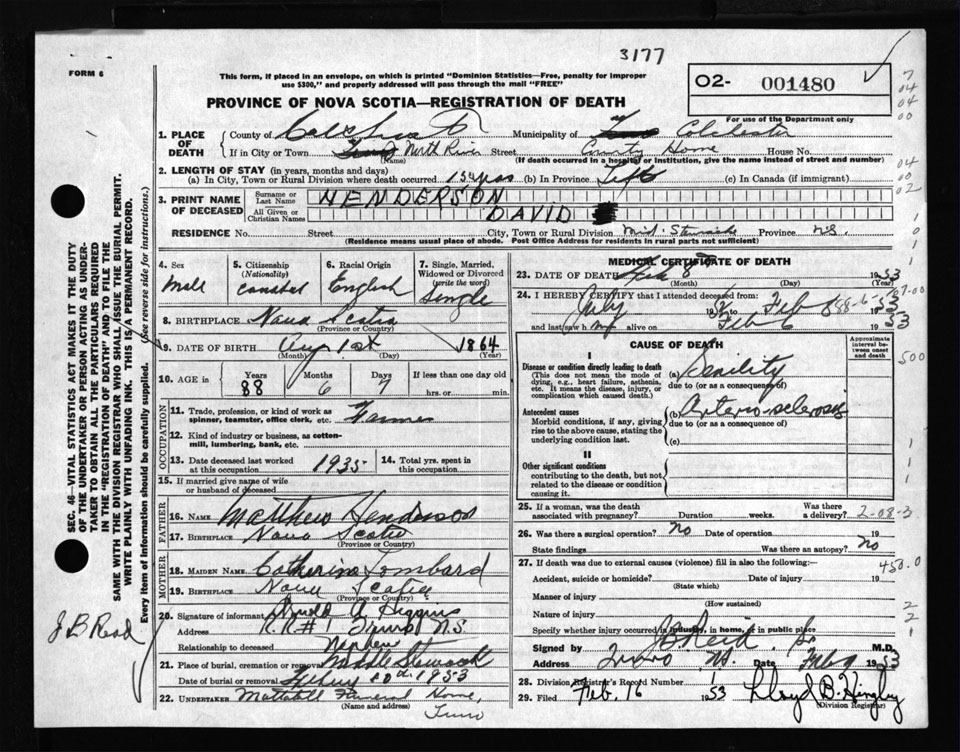 3177
FORM 6
This form, if placed in an envelope, on which is printed "Dominion Statistics—Free, penalty for improper
use $300," and properly addressed will pass through the mail "FREE"
02- 001480
For use of the Department only
PROVINCE OF NOVA SCOTIA—REGISTRATION OF DEATH
1. PLACE OF DEATH
County of Colchester Municipality of Colchester
If in City or Town North River Street County Home House No.
(Name) (If death occurred in a hospital or institution, give the name instead of street and number)
2. LENGTH OF STAY (in years, months and days)
(a) In City, Town or Rural Division where death occurred (b) In Province Life (c) In Canada (if immigrant)
3. PRINT NAME OF DECEASED
Surname or Last Name HENDERSON
All Given or Christian Names DAVID
RESIDENCE No. Street City, Town or Rural Division Mid. Stewiacke Province N.S.
(Residence means usual place of abode. Post Office Address for residents in rural parts not sufficient)
4. Sex Male
5. Citizenship (Nationality)
6. Racial Origin English
7. Single, Married, Widowed or Divorced (write the word) Single
8. BIRTHPLACE Nova Scotia
(Province or Country)
9. DATE OF BIRTH Aug 1st 1864
(Month) (Day) (Year)
10. AGE in Years 88 Months 6 Days 7 If less than one day old
hrs. or min.
OCCUPATION
11. Trade, profession, or kind of work as
spinner, teamster, office clerk, etc. Farmer
12. Kind of industry or business, as cotton-
mill, lumbering, bank, etc.
13. Date deceased last worked
at this occupation 1935
14. Total yrs. spent in
this occupation
15. If married give name of wife
or husband of deceased
FATHER
16. NAME Matthew Henderson
17. BIRTHPLACE Nova Scotia
(Province or Country)
MOTHER
18. MAIDEN NAME Catherine Lombard
19. BIRTHPLACE Nova Scotia
(Province or Country)
20. Signature of informant A Higgins
Address R.R.#1 Truro N.S.
Relationship to deceased Nephew
21. Place of burial, cremation or removal Middle Stewiacke
Date of burial or removal 1953
22. UNDERTAKER Mattatall Funeral Home,
(Name and address) Truro
MEDICAL CERTIFICATE OF DEATH
23. DATE OF DEATH Feb 8 1953
(Month) (Day)
24. I HEREBY CERTIFY that I attended deceased from:
July to Feb 8 1953
and last saw him alive on Feb 6 1953
CAUSE OF DEATH
Approximate interval between onset and death
I
Disease or condition directly leading to death
(This does not mean the mode of
dying, e.g., heart failure, asthenia,
etc. It means the disease, injury, or
complication which caused death.)
(a) Senility
due to (or as a consequence of)
Antecedent causes
Morbid conditions, if any, giving
rise to the above cause, stating the
underlying condition last.
(b) Arterio-sclerosis
due to (or as a consequence of)
(c)
II
Other significant conditions
contributing to the death, but not
related to the disease or condition
causing it.
25. If a woman, was the death
associated with pregnancy? Duration weeks. Was there
a delivery? 2-08-3
26. Was there a surgical operation? No Date of operation 19
State findings Was there an autopsy? No
27. If death was due to external causes (violence) fill in also the following:—
Accident, suicide or homicide? Date of injury 19
(State which)
Manner of injury
(How sustained)
Nature of injury
Specify whether injury occurred in industry, in home, or in public place
Signed by J B Reid M.D.
Address Truro N.S. Date Feb 9 1953
28. Division Registrar's Record Number
29. Filed Feb. 16 1953 Lloyd B. Hingley
(Division Registrar)
SEC. 46—VITAL STATISTICS ACT MAKES IT THE DUTY
OF THE UNDERTAKER OR PERSON ACTING AS UNDER-
TAKER TO OBTAIN ALL THE PARTICULARS REQUIRED
IN THE "REGISTRATION OF DEATH" AND TO FILE THE
SAME WITH THE DIVISION REGISTRAR WHO SHALL ISSUE THE BURIAL PERMIT.
WRITE PLAINLY WITH UNFADING INK. THIS IS A PERMANENT RECORD.
Every item of information should be carefully supplied. (See reverse side for instructions.)
J B Read
7
04
04
00
04
00
02
1
0
1
500
450.0
2
2
1